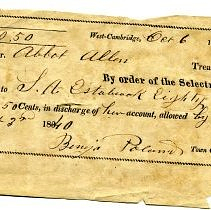 0.50 West-Cambridge, Oct 6 1
r. Abbot Allen Treas
By order of the Selectm
to J. A. Estabrook Eighty
50 Cents, in discharge of her account, allowed by
1840
Benja Town C